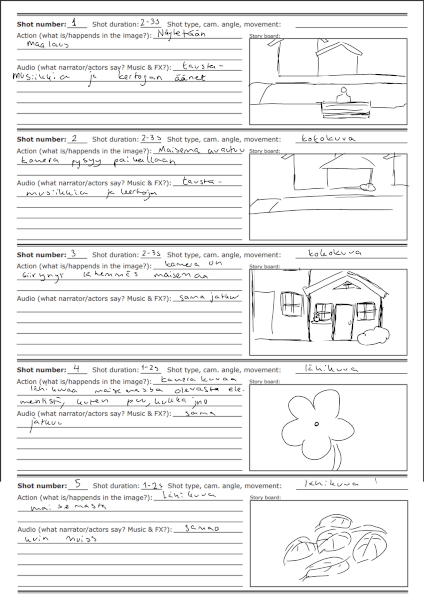 Shot number: 1 Shot duration: 2-3s Shot type, cam. angle, movement:
Action (what is/happends in the image?): Näytetään
maalaus
Story board:
Audio (what narrator/actors say? Music & FX?): tausta-
musiikkia ja kertojan äänet
Shot number: 2 Shot duration: 2-3s Shot type, cam. angle, movement: kokokuva
Action (what is/happends in the image?): Maisema avautuu
kamera pysyy paikallaan
Story board:
Audio (what narrator/actors say? Music & FX?): tausta-
musiikkia ja kertoja
Shot number: 3 Shot duration: 2-3s Shot type, cam. angle, movement: kokokuva
Action (what is/happends in the image?): kamera on
siirtynyt lähemmäs maisemaa
Story board:
Audio (what narrator/actors say? Music & FX?): sama jatkuu
Shot number: 4 Shot duration: 1-2s Shot type, cam. angle, movement: lähikuva
Action (what is/happends in the image?): kamera kuvaa
lähikuvaa maisemassa olevasta ele-
mentistä, kuten puu, kukka jne
Story board:
Audio (what narrator/actors say? Music & FX?): sama
jatkuu
Shot number: 5 Shot duration: 1-2s Shot type, cam. angle, movement: lähikuva
Action (what is/happends in the image?): Lähikuva
maisemasta
Story board:
Audio (what narrator/actors say? Music & FX?): samaa
kuin muissa